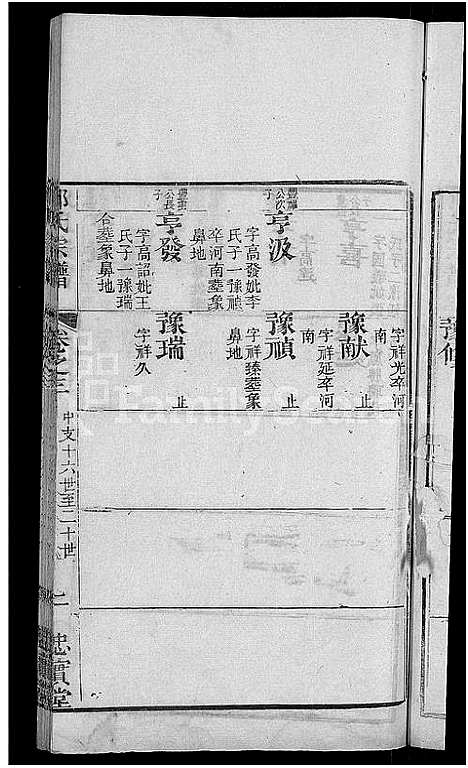 亨汲
字高發妣李
氏子一豫禎
卒河南塟象
鼻地
亨發
字高詔妣王
氏子一豫瑞
合塟象鼻地
豫献
字祥光卒河
南
止
豫禎
字祥延卒河
南
字祥臻塟象
鼻地
止
豫瑞
字祥久
止
氏宗譜
卷之三
中支十六世至二十世
忠實堂
FamilySearch